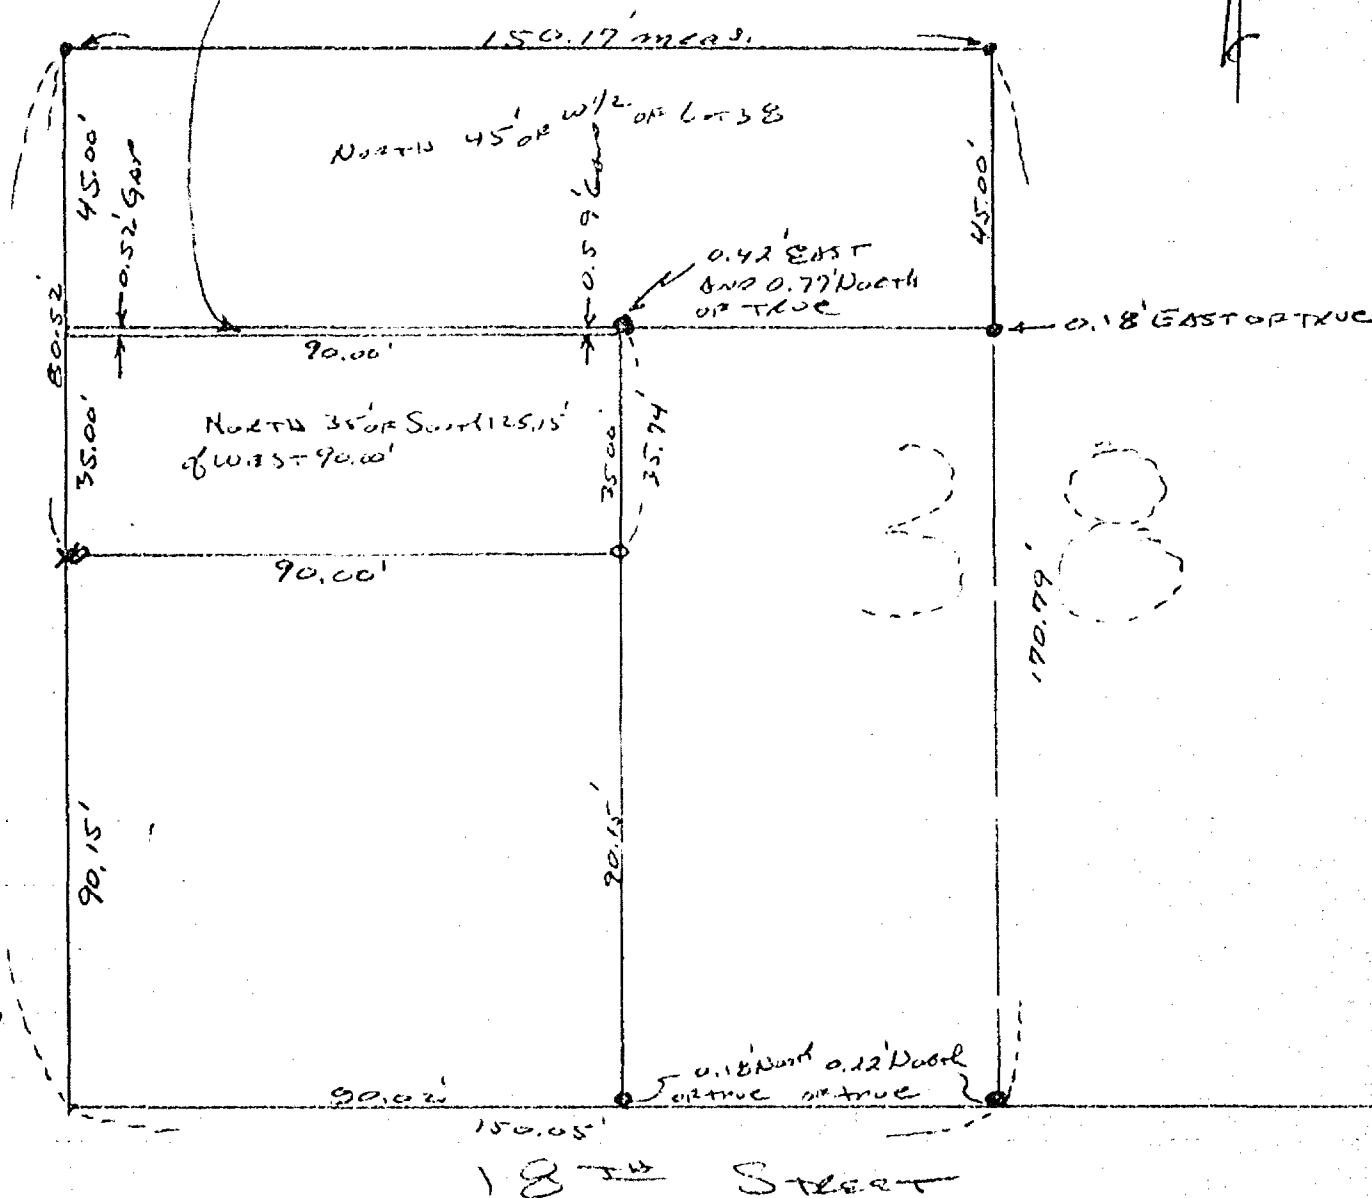 150.17' meas.
NORTH 45' OF W 1/2 OF LOT 38
45.00'
0.52' GAP
0.59' GAP
45.00'
0.42' EAST
AND 0.77' NORTH
OF TRUE
0.18' EAST OF TRUE
80.52'
90.00'
NORTH 35' OF SOUTH 125.15'
of WEST 90.00'
35.00'
35.00
35.74'
38
90.00'
170.79'
90.15'
90.15'
0.18' North
OF TRUE
0.22' North
OF TRUE
90.02'
150.05'
18TH STREET